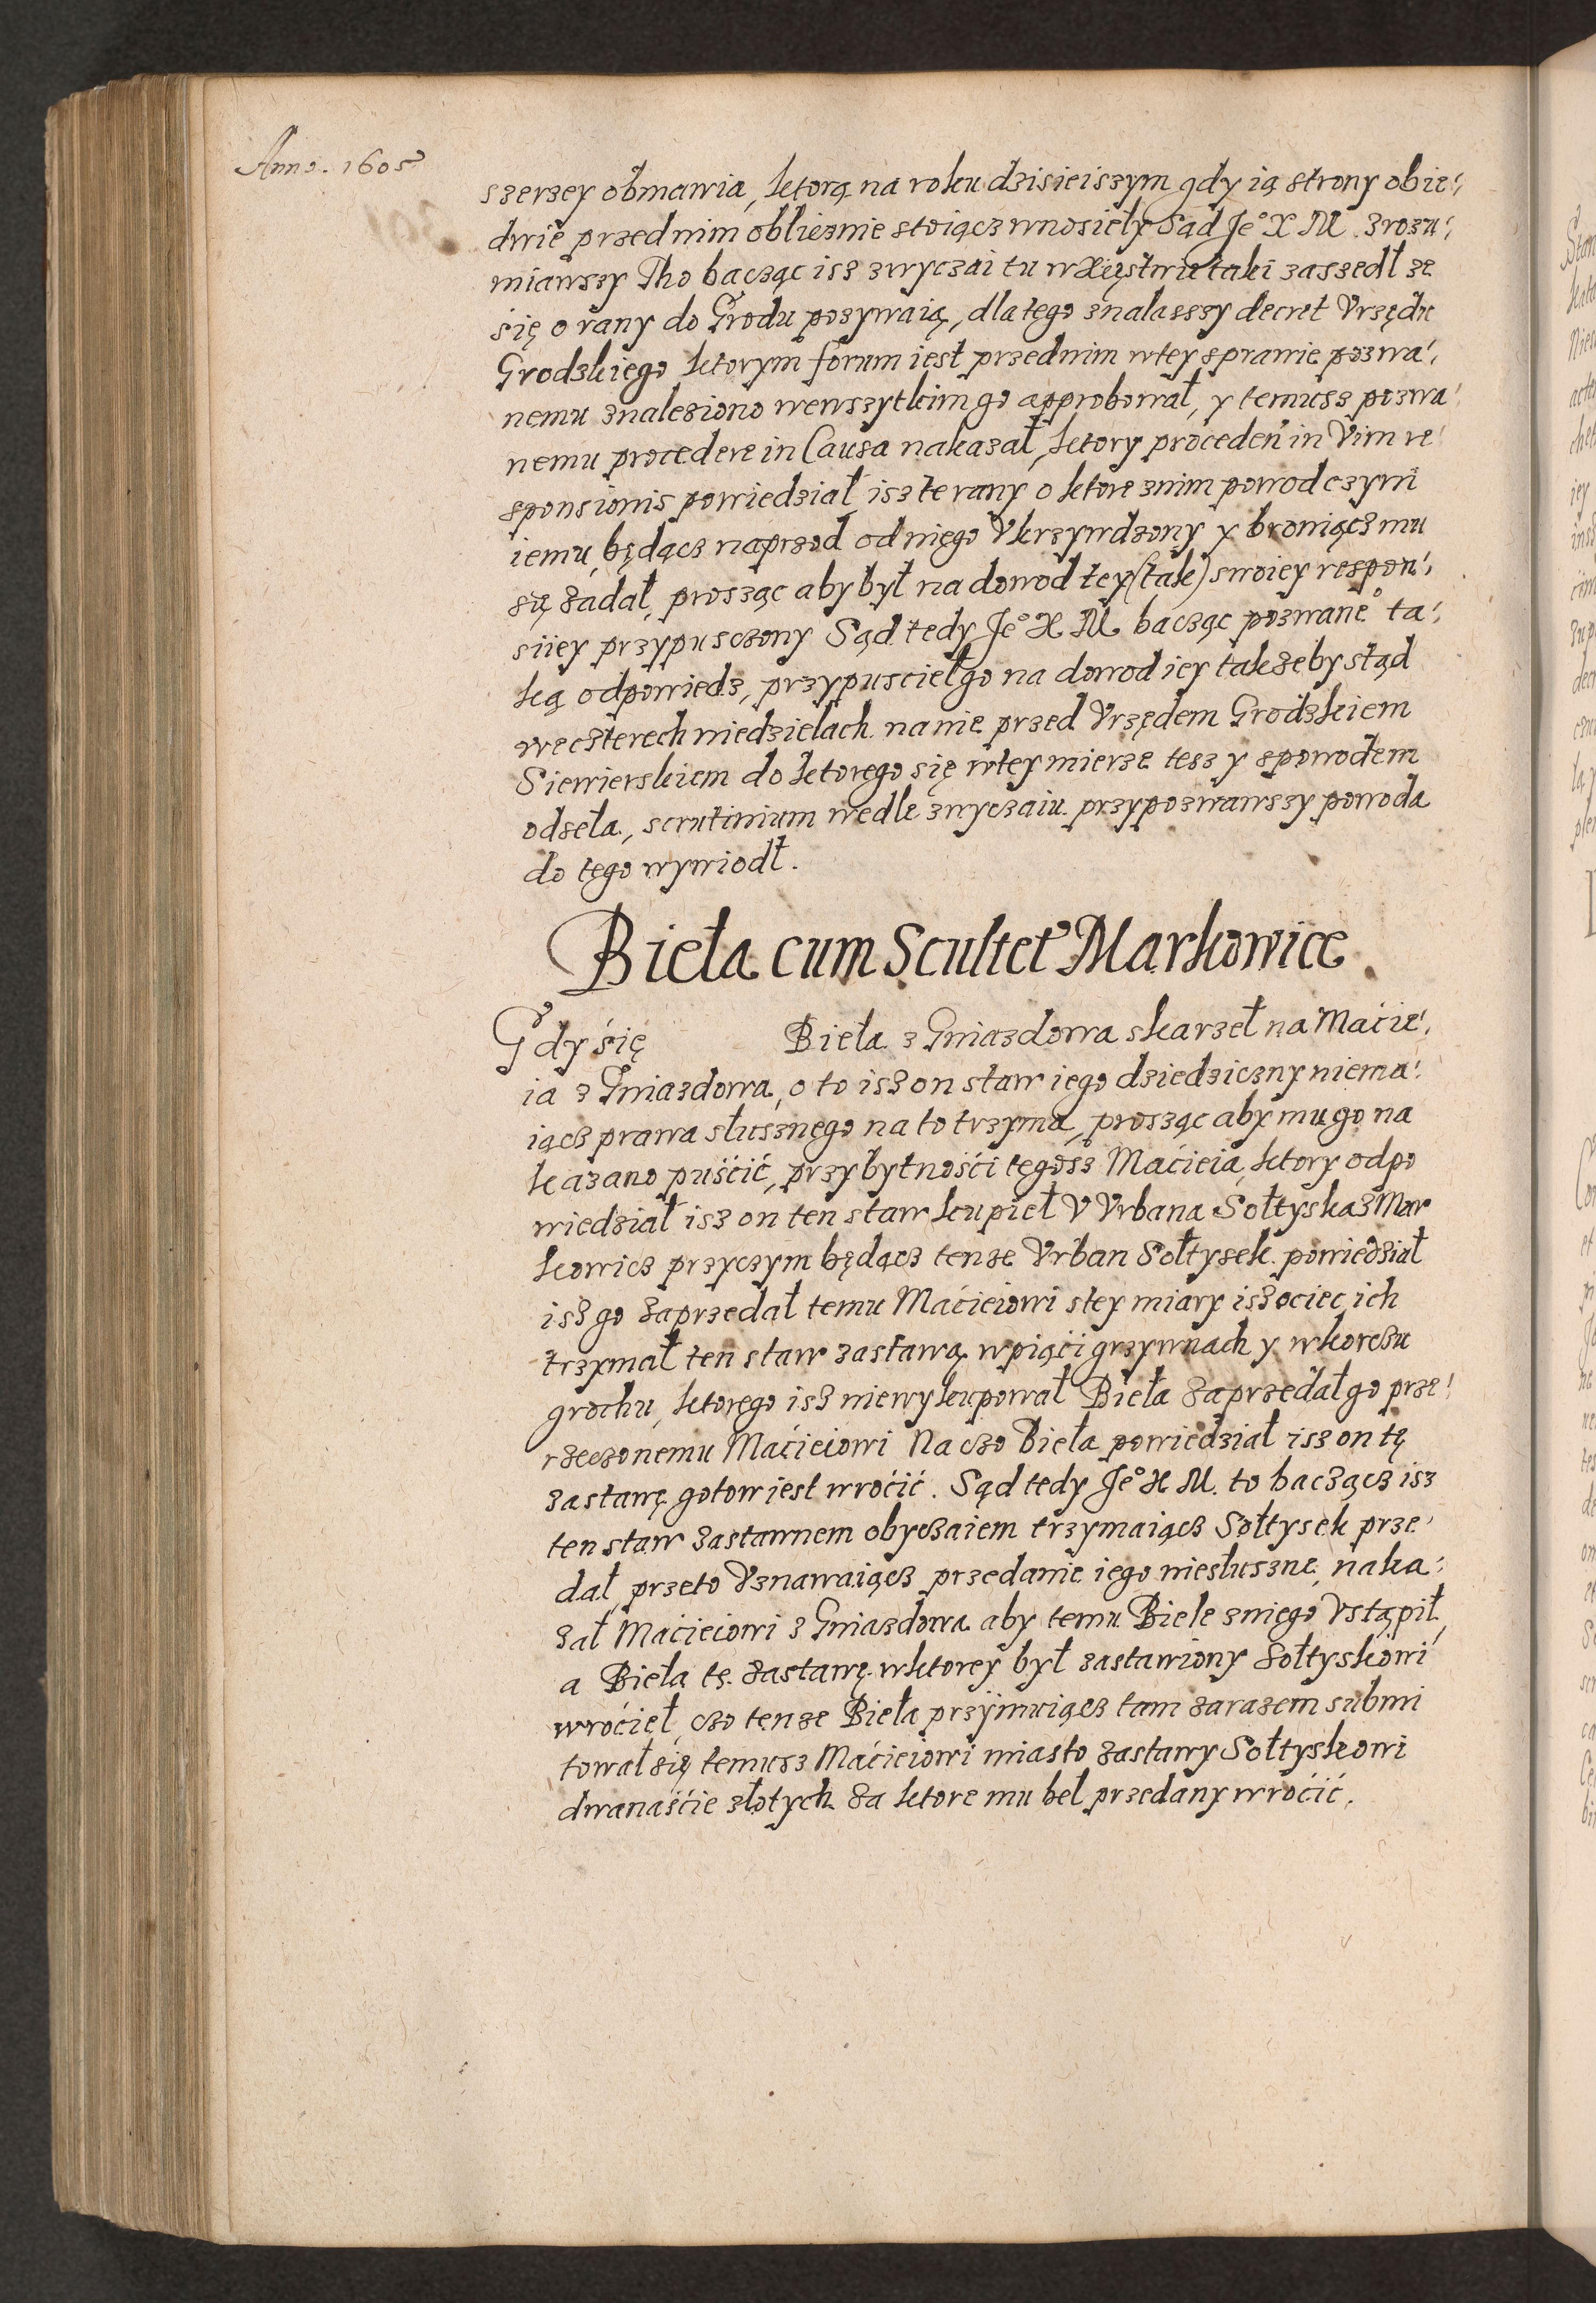 Anno. 1605
szerzey obmawia, ktorą na roku dzisieiszym gdy ią strony obie:
dwie przed nim obliczmie stoiącz wnosiely Sąd Je° X M. zrozu:
miawszy Tho bacząc isz zwyczai tu w Xięstwu taki zaszedł ze
się o rany do Grodu pozywaią, dla tęgo znalaszzy decret Vrzędu
Grodzkiego ktorym forum iest przed nim w tey sprawie pozwa:
nemu znaleziono wewszytkim go approbował, y temusz pozwa:
nemu procedere in Causa nakazał, ktory proceden in Vim re:
sponsionis powiedział, isz te rany o ktore z nim powod czyni
iemu, będącz naprzod od niego Vkrzywdzony y broniącz mu
się zadał, prosząc aby był na dowod tey (tak) swoiey respon:
siiey przypusczony Sąd tedy Je° X M. bacząc pozwane° ta:
ką odpowiedz, przypuscieł go na dowod iey tak zeby stąd
we czterech niedzielach na nie przed Vrzędem Grodzkiem
Siewierskiem do ktorego się w tey mierze tesz y s powodem
odseła, scrutinium wedle zwyczaiu przypozwawszy powoda
do tęgo wywiodł.
Bieła cum Scultet Markowice
Gdy się Bieła z Gniazdowa skarzeł na Macie:
ia z Gniazdowa, o to isz on staw iego dziedziczny niema:
iącz prawa słusznego na to trzyma, prosząc aby mu go na
kazano puścić, przy bytności tęgosz Macieia, ktory odpo
wiedział isz on ten staw kupieł V Vrbana Sołtyska z Mar
kowicz przyczym będącz tenze Vrban Sołtysek powiedział
isz go zaprzedał temu Macieiowi s tey miary isz ociec ich
trzymał ten staw zastawą w piąci grzywnach y w korczu
grochu, ktorego isz niewykupował Bieła zaprzedał go prze:
rzeczonemu Macieiowi Na czo Bieła powiedział isz on tę
zastawę gotow iest wrocić. Sąd tedy Je° X M. to baczącz isz
ten staw zastawnem obyczaiem trzymaiącz Sołtysek prze:
dał, przeto Vznawaiącz przedanie iego niesłuszne, naka:
zał Macieiowi z Gniazdowa aby temu Biele z niego Vstąpił,
a Bieła tę zastawę w ktorey był zastawiony Sołtyskowi
wrocieł, czo tenze Bieła przyimuiącz tam zarazem submi
tował się temusz Macieiowi miasto zastawy Sołtyskowi
dwanaście złotych za ktore mu beł przedany wrocić.